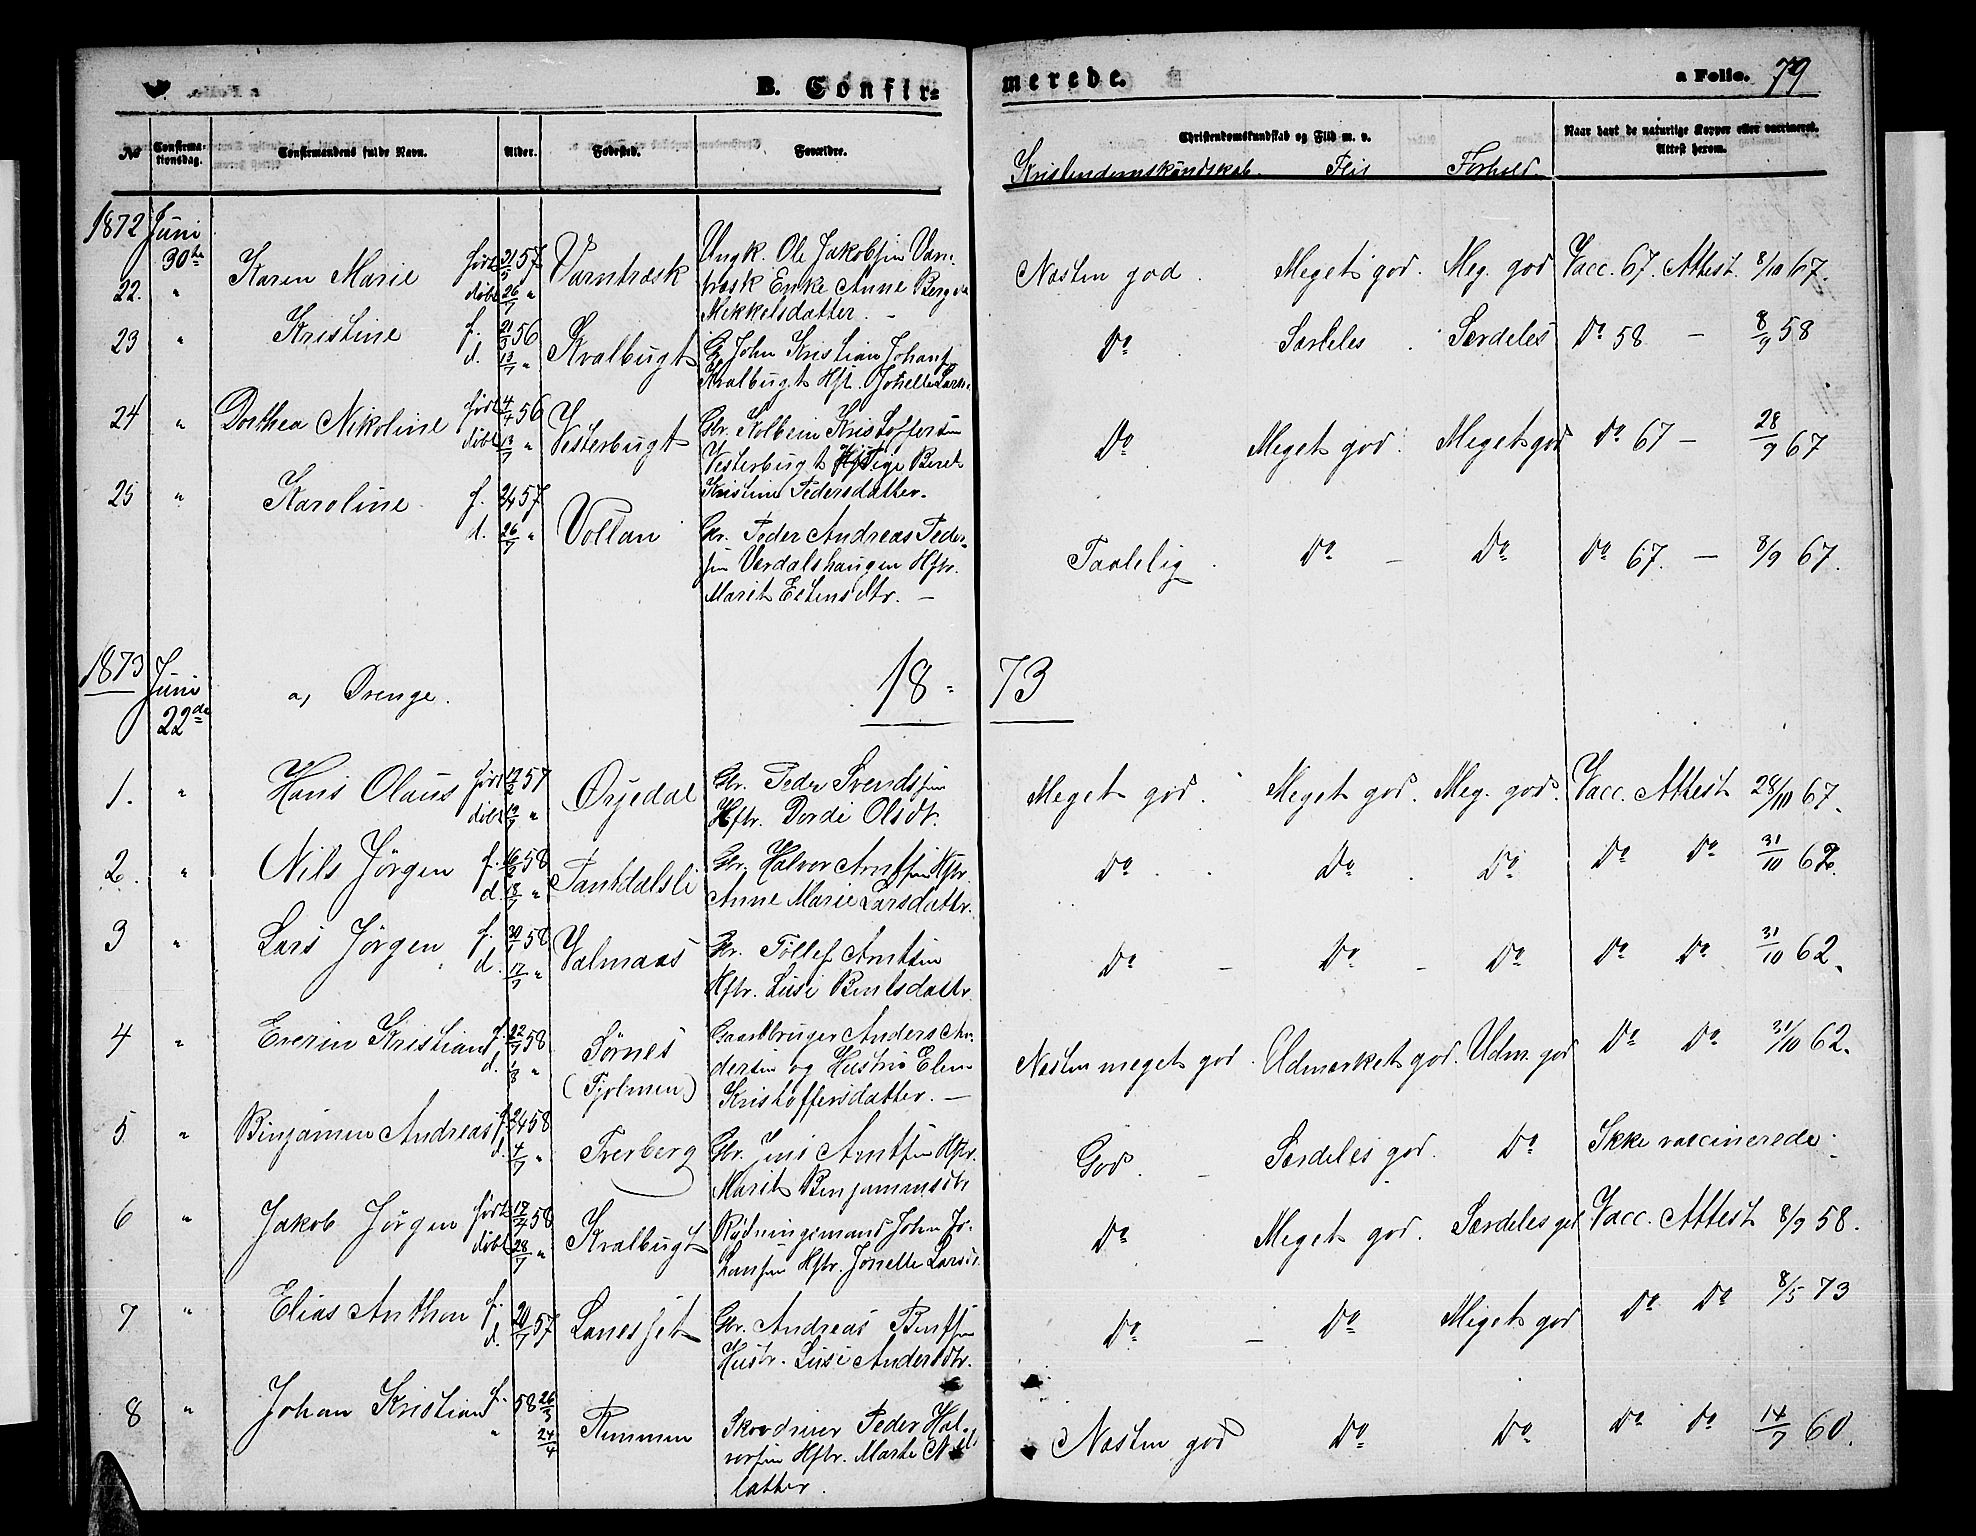 B. Confir-
merede.
a Folio. 79
No
Confirma-
tionsdag.
Confirmandens fulde Navn.
Alder.
Fødested.
Forældre.
Christendomskundskab og Flid m. v.
Kristendomskundskab. Flit Forhold
Naar havt de naturlige Kopper eller vaccineret.
Attest herom.
1872 Juni
30te
22. " Karen Marie født 57 Varntræsk
døbt 26/7 "
Ungk. Ole Jakobsen Varn-
træsk Enke Anne Berg
Mikkelsdatter. -
Næsten god Meget god. Meg. god Vacc. 67. Attest 8/10 67.
23 " Kristine f. 21/3 56 Kvalbugt
d. 13/7 "
John Kristian Johans
Kvalbugt Hst. Jonelle Lars
Do Særdeles. Særdeles Do 58 - 8/9 58
24 " Dorthea Nikoline født 4/4 56 Vesterbugt
døbt 13/7 "
Gbr. Kolbein Kristoffersen
Vesterbugt Pige Beret
Kristine Pedersdatter.
Do Meget god. Meget god Do 67 - 28/9 67
25 " Karoline f. 57 Vollan
d. 26/7 "
Gbr. Peder Andreas Peder-
sen Værdalshaugen Hstr.
Marit Estensdtr. -
Taalelig. Do - Do Do 67. - 8/9 67.
1873 Juni
22de
a, Drenge.
18 = 73
1. " Hans Olaus født 57 Øyedal
døbt 12/7 "
Gbr. Peder Svendsen
Hstr. Dordi Olsdtr.
Meget god. Meget god. Meg. god. Vacc. Attest 28/10 67.
2. " Nils Jørgen f. 58
d. 18/7 "
Gbr. Halvor Arntsen Hstr.
Anne Marie Larsdattr.
Do Do. Do Do Do 31/10 62.
3 " Lars Jørgen f. 58 Valmaas
d. 17/7 "
Gbr. Tollef Arntsen
Hstr. Lise Bentsdattr
Do - Do - Do Do Do 31/10 62.
4 " Everin Kristian f. 58 Sørnes
d. 1/8 " (Fjolmen)
Gaardbruger Anders An-
dersen og Hustru Elen
Kristoffersdatter. -
Næsten meget god. Udmærket god. Udm. god Do Do 31/10 62.
5 " Binjamen Andreas f. 58 Tverberg
d. 4/7 "
Gbr. Jens Arntsen Hstr.
Marit Benjamensdtr
God. - Særdeles god. Do Ikke vaccinerede.
6 " Jakob Jørgen født 58 Kvalbugt
døbt 28/7 "
Rødningsmand John Jo-
hansen Hstr. Jonelle Larsd.
Do Meget god. Særdeles god Vacc. Attest 8/9 58.
7 " Elias Anthon f.
d. 20/7 57
Gbr. Andreas Bentsen
Hustr. Lise Andersdtr.
Do - Do Meget god Do Do 8/5 73
8 " Johan Kristian f. 58 26/3
" 24/4
Peder Hal-
vorsen Hstr. Marte Nils
datter.
Næsten god Do Do Do Do 14/7 60.